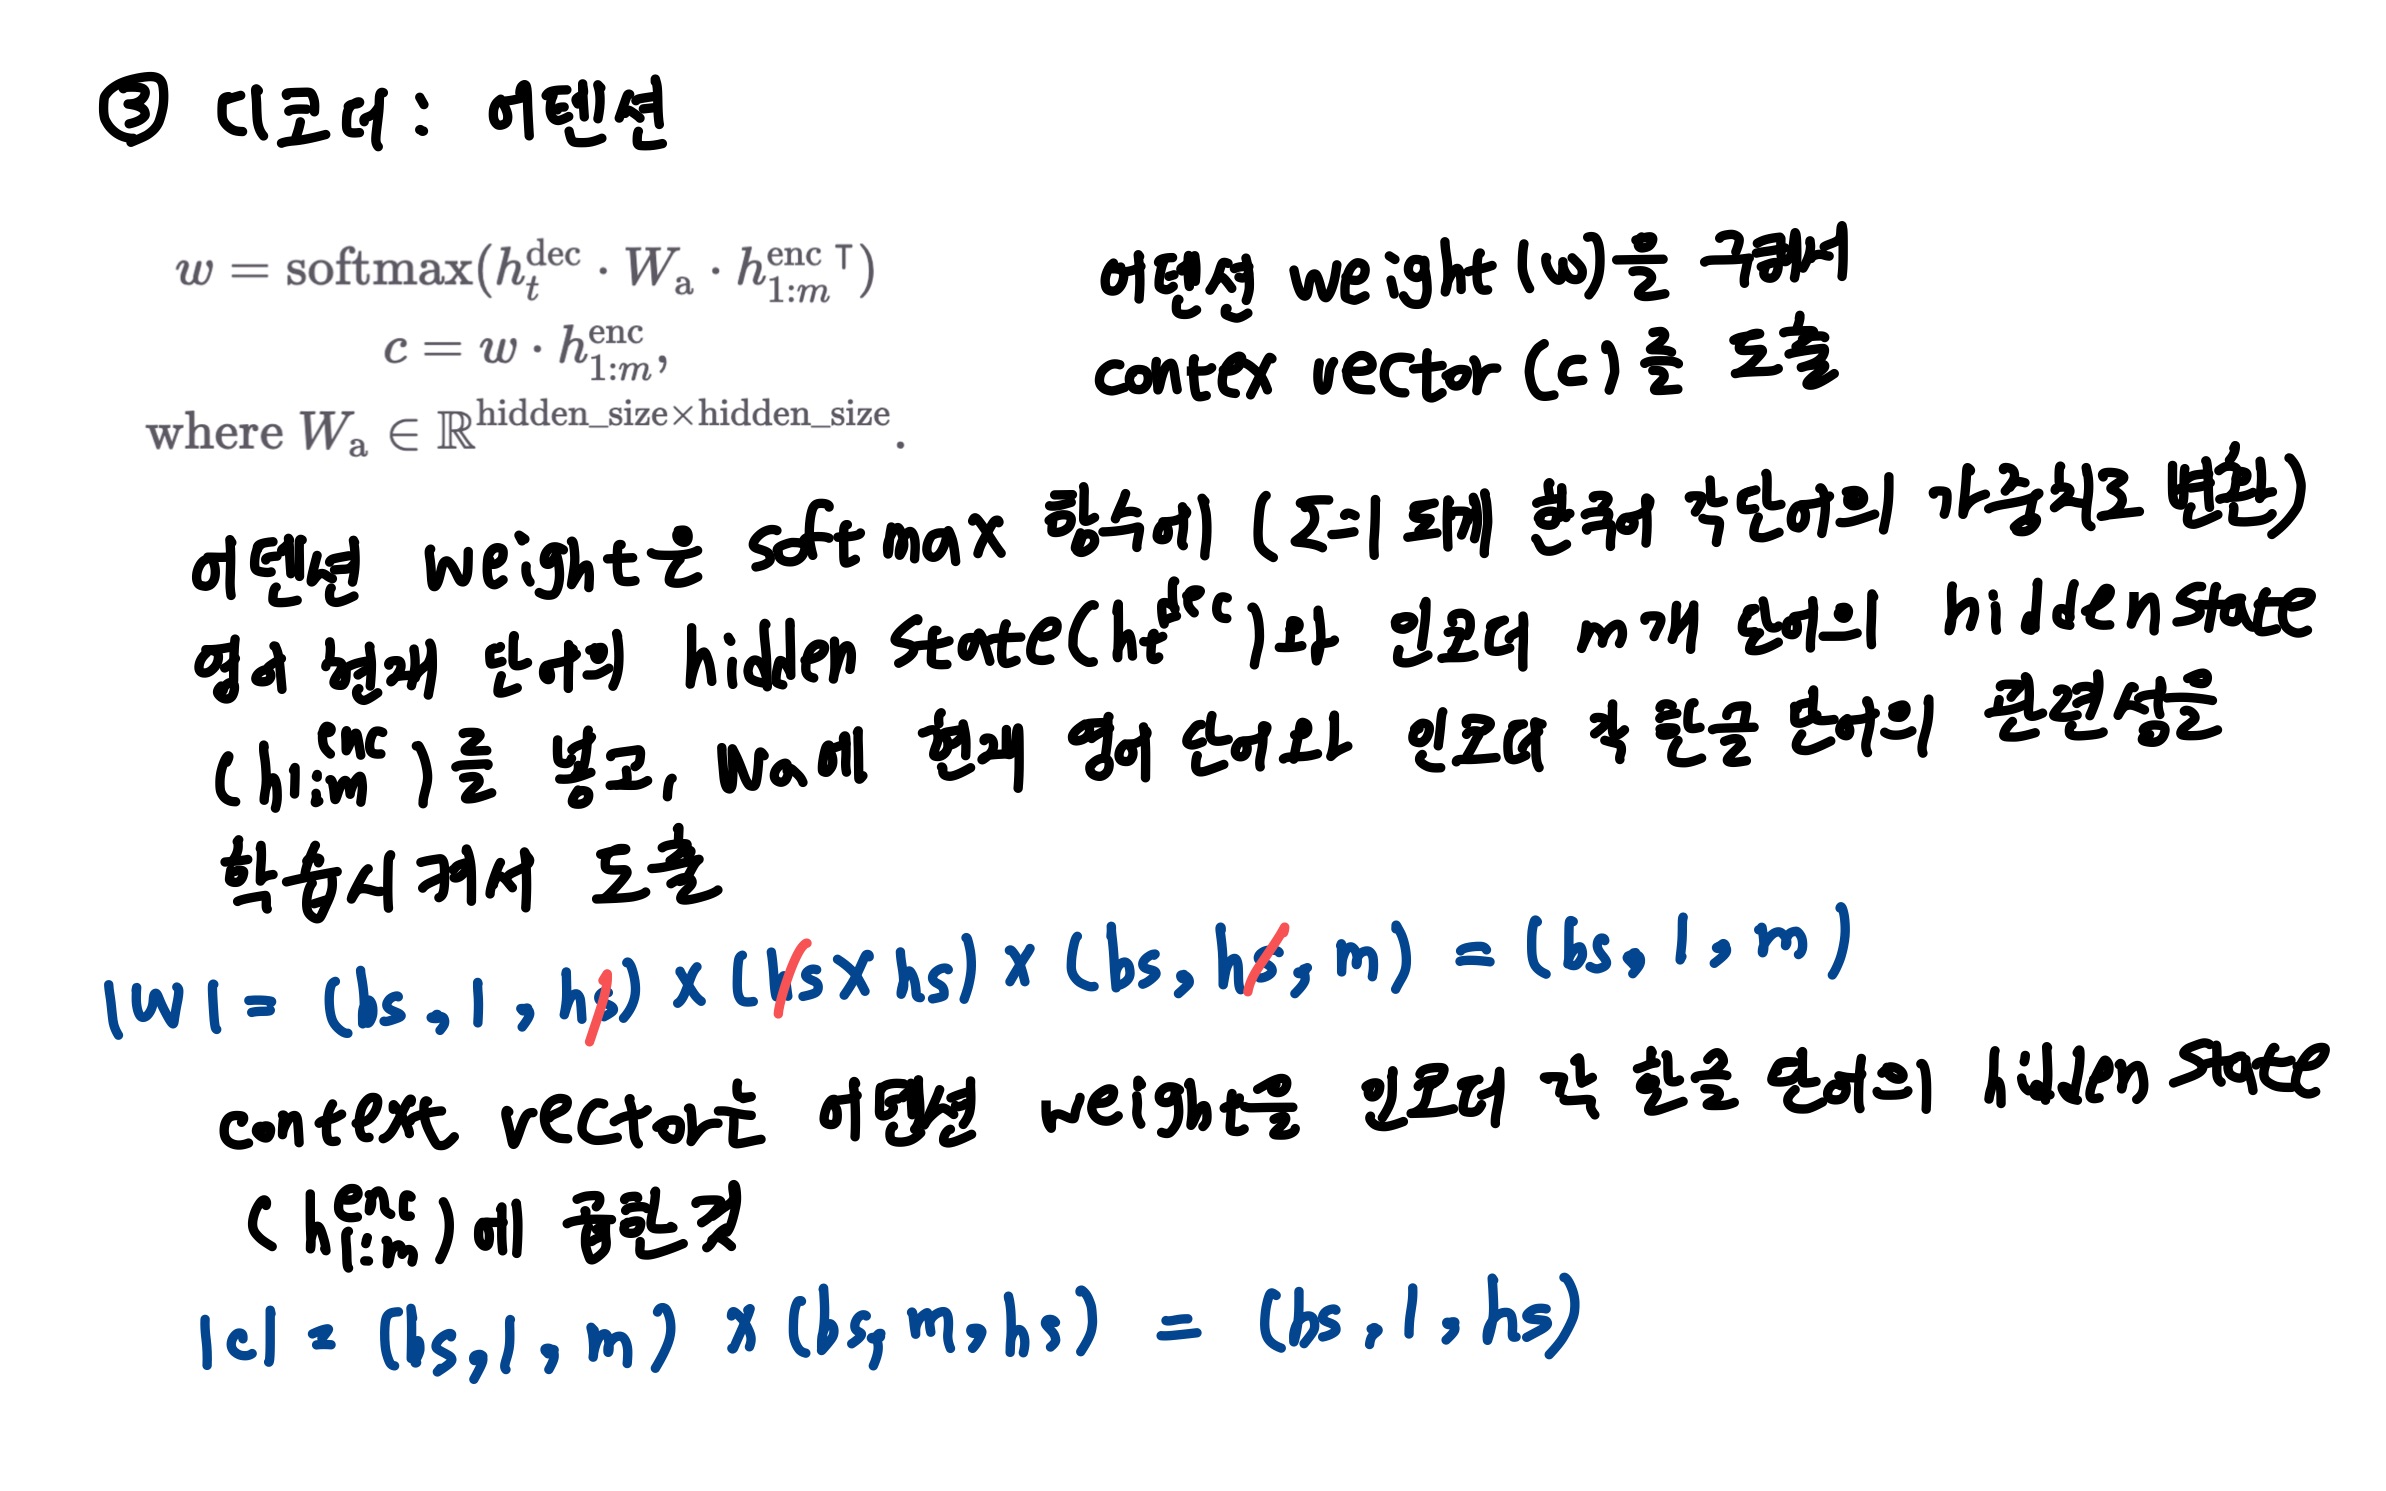 ③ 디코더: 어텐션
w = softmax(h_t^dec · W_a · h_{1:m}^{enc ⊤})
c = w · h_{1:m}^enc,
where W_a ∈ ℝ^{hidden_size×hidden_size}.
어텐션 weight (w)을 구해서
contex vector (c)를 도출
어텐션 weight은 softmax 함수에 (Σ=1 되게 한국어 각 단어의 가중치로 변환)
영어 현재 단어의 hidden state(h_t^dec)와 인코더 m개 단어의 hidden state
(h_{1:m}^enc)를 넣고, Wa에 현재 영어 단어와 인코더 각 한글 단어의 관련성을
학습시켜서 도출
|W| = (bs, 1, hs) × (hs × hs) × (bs, hs, m) = (bs, 1, m)
context vector는 어텐션 weight을 인코더 각 한글 단어의 hidden state
(h_{1:m}^enc)에 곱한것
|c| = (bs, 1, m) × (bs, m, hs) = (bs, 1, hs)